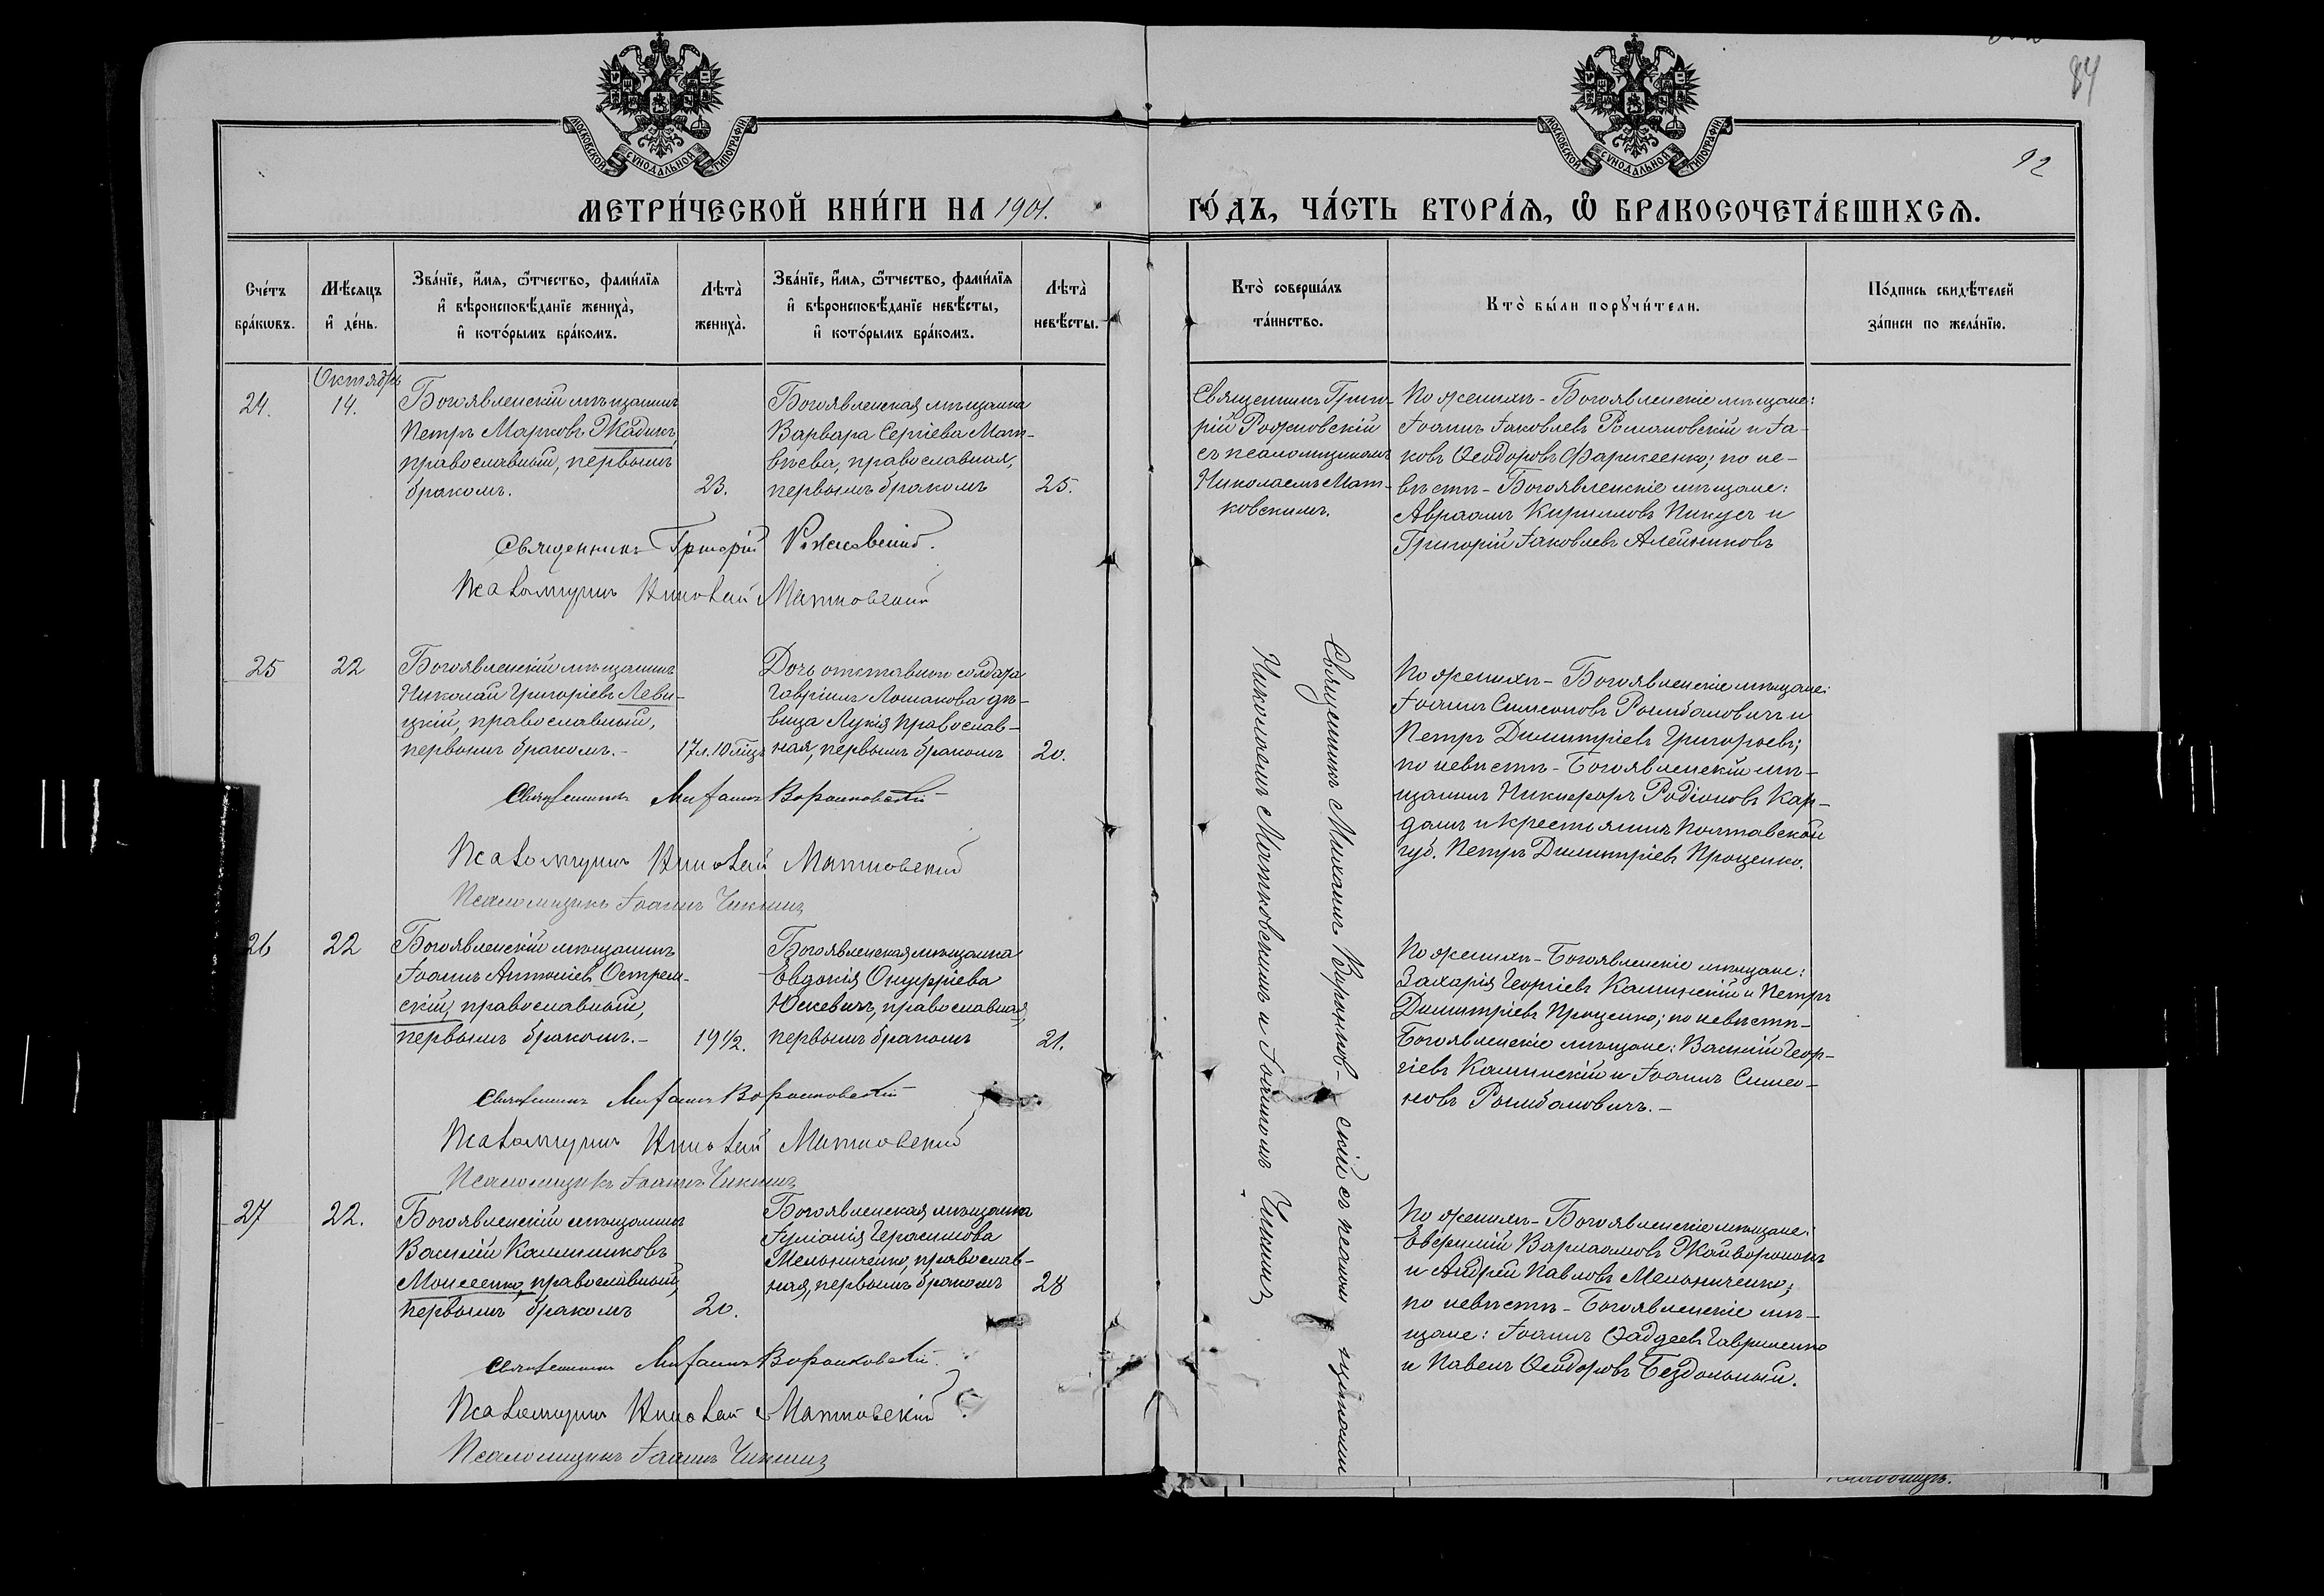 84
92
МОСКОВСКОЙ СѴНОДАЛЬНОЙ ТИПОГРАФІИ
МОСКОВСКОЙ СѴНОДАЛЬНОЙ ТИПОГРАФІИ
МЕТРИ́ЧЕСКОЙ КНИ́ГИ НА 1901.
ГО́ДЪ, ЧА́СТЬ ВТОРА́Я, Ѡ҆ БРАКОСОЧЕТА́ВШИХСЯ.
Сче́тъ
бра́кѡвъ.
Мѣ́сяцъ
и҆ де́нь.
Зва́нїе, и҆́мя, ѻ҆́тчество, фами́лїя
и҆ вѣроисповѣ́данїе жениха̀,
и҆ кото́рымъ бра́комъ.
Лѣта̀
жениха̀.
Зва́нїе, и҆́мя, ѻ҆́тчество, фами́лїя
и҆ вѣроисповѣ́данїе невѣ́сты,
и҆ кото́рымъ бра́комъ.
Лѣта̀
невѣ́сты.
Кто̀ соверша́лъ
та́инство.
Кто̀ бы́ли порꙋчи́тели.
По́дпись свидѣ́телей
за́писи по жела́нїю.
24.
Октябрь
14.
Богоявленскій мѣщанинъ
Петръ Марковъ Жадикъ,
православный, первымъ
бракомъ.
23.
Богоявленская мѣщанка
Варвара Сергіева Мат-
вѣева, православная,
первымъ бракомъ
25.
Священникъ Григо-
рій Рожновскій
съ псаломщикомъ
Николаемъ Мат-
ковскимъ.
По женихѣ - Богоявленскіе мѣщане:
Іоаннъ Іаковлевъ Романовскій и Іа-
ковъ Ѳеодоровъ; по не-
вѣстѣ - Богоявленскіе мѣщане:
Авраамъ Кирилловъ Пикусъ и
Григорій Іаковлевъ Алейниковъ
Священникъ Григорій Рожновскій.
Псаломщикъ Николай Матковскій
25
22
Богоявленскій мѣщанинъ
Николай Григоріевъ Леви-
цкій, православный,
первымъ бракомъ.-
17л. 10 мѣц.
Дочь отставного солдата
Гавріила Ломакова дѣ-
вица Лукія православ-
ная, первымъ бракомъ
20.
По женихѣ - Богоявленскіе мѣщане:
Іоаннъ Симеоновъ Рымбаловичъ и
Петръ Димитріевъ Григорьевъ;
по невѣстѣ - Богоявленскій мѣ-
щанинъ Никифоръ Родіоновъ Кар-
дашъ и крестьянинъ Полтавской
губ. Петръ Димитріевъ Проценко.
Священникъ Михаилъ Воронковскій
Псаломщикъ Николай Матковскій
Псаломщикъ Іоаннъ Чикинъ
Священникъ Михаилъ Воронков-скій съ псаломщиками
Николаемъ Матковскимъ и Іоанномъ
26
22
Богоявленскій мѣщанинъ
Іоаннъ Антоніевъ Острем-
скій, православный,
первымъ бракомъ.-
19 1/2.
Богоявленская мѣщанка
Евдокія Онуфріева
Юскевичъ, православная,
первымъ бракомъ
21.
По женихѣ - Богоявленскіе мѣщане:
Захарія Георгіевъ Калинскій и Петръ
Димитріевъ Проценко; по невѣстѣ -
Богоявленскіе мѣщане: Василій Геор-
гіевъ Калинскій и Іоаннъ Симео-
новъ Рымбаловичъ.-
Священникъ Михаилъ Воронковскій
Псаломщикъ Николай Матковскій
Псаломщикъ Іоаннъ Чикинъ
27
22.
Богоявленскій мѣщанинъ
Василій Каллиниковъ
Моисеенко, православный,
первымъ бракомъ
20.
Богоявленская мѣщанка
Іуліанія Герасимова
Мельниченко, православ-
ная, первымъ бракомъ
28
По женихѣ - Богоявленскіе мѣщане:
Евфимій Варлаамовъ Жайворонокъ
и Андрей Павловъ Мельниченко;
по невѣстѣ - Богоявленскіе мѣ-
щане: Іоаннъ Ѳаддеевъ Гавриленко
и Павелъ Ѳеодоровъ Бездольный.
Священникъ Михаилъ Воронковскій
Псаломщикъ Николай Матковскій
Псаломщикъ Іоаннъ Чикинъ